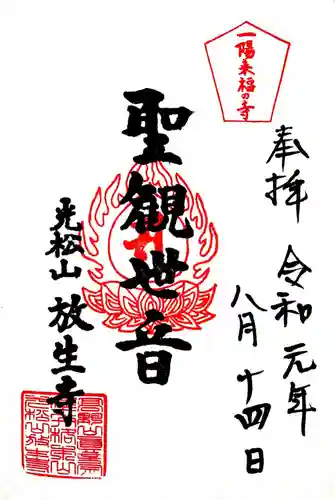 奉拝 令和元年
八月十四日
一陽来福の寺
聖観世音
光松山 放生寺